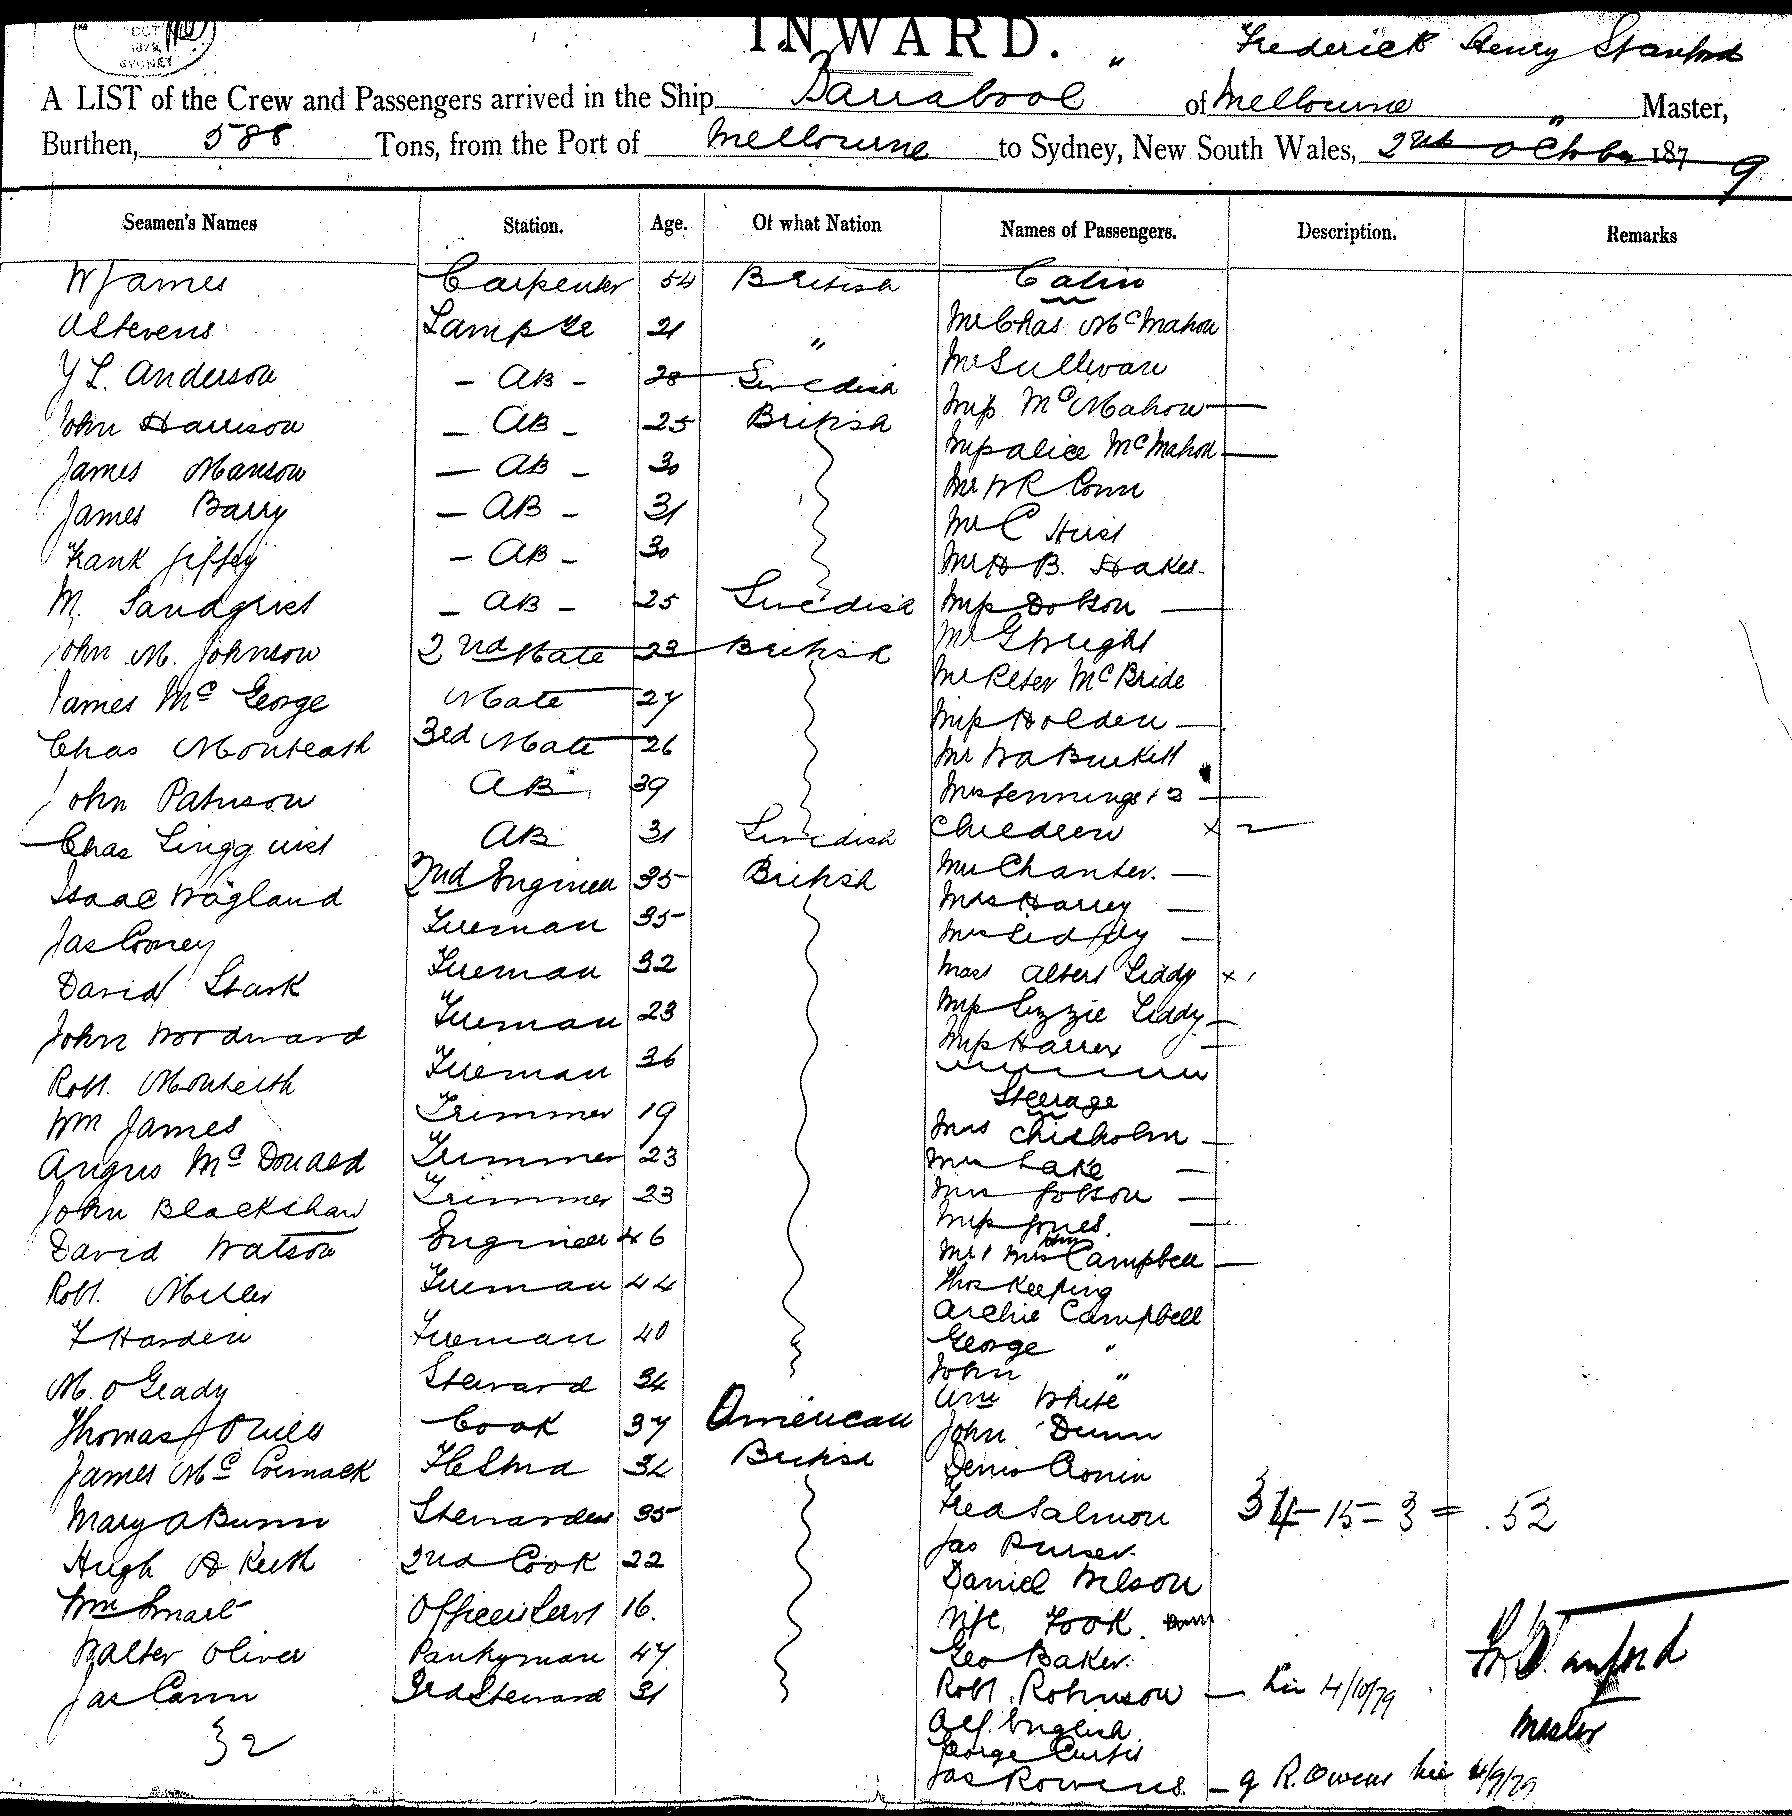 OCT
1879
SYDNEY
INWARD.
" Frederick Henry Stanford
A LIST of the Crew and Passengers arrived in the Ship Barrabool of Melbourne " Master,
Burthen, 588 Tons, from the Port of Melbourne to Sydney, New South Wales, 2nd October 1879
Seamen's Names Station. Age. Of what Nation Names of Passengers. Description. Remarks
W James Carpenter 54 British Cabin
A Stevens Lamp 21 " Mr Chas McMahon
Y L. Anderson - AB - 28 Swedish Mr Sullivan
John Harrison - AB - 25 British Miss McMahon —
James Manson - AB - 30 Miss Alice McMahon —
James Barry - AB - 31 Mr W R Conn
Frank Jiffey - AB - 30 Mr C Hurst
M. Sandquist - AB - 25 Swedish Mr H B. Stakes.
John M. Johnson 2nd Mate 23 British Miss Dobson —
James McGeorge Mate 27 Mr G Wright
Chas Monteath 3rd Mate 26 Mr Peter McBride
John Patterson AB 39 Miss Holden —
Chas Lingquist AB 31 Swedish Mr W A Burkitt
Isaac Wagland 2nd Engineer 35 British Mrs Jennings 13 —
Jas Cooney Fireman 35 Children x 2
David Stark Fireman 32 Mrs Chanter. —
John Woodward Fireman 23 Mrs Harrey —
Robt. Monteith Fireman 36 Mrs Liddy —
Wm James Trimmer 19 Mast Albert Liddy x 1
Angus McDonald Trimmer 23 Miss Lizzie Liddy —
John Blackshaw Trimmer 23 Miss Harrex —
David Watson Engineer 46 Steerage
Robt. Miller Fireman 44 Mrs Chisholm —
F Harden Fireman 40 Mrs Lake —
M. O Grady Steward 34 Mrs Jobson —
Thomas J O'Niel Cook 37 American Miss Jones. —
James McCormack F C Stwd 34 British Mr & Mrs Campbell —
Mary A Bunn Stewardess 35 Thos Keeping
Hugh A Keith 2nd Cook 22 Archie Campbell
Wm Smart Officers Servt 16. George "
Walter Oliver Pantryman 47 John "
Jas Cann 3rd Steward 31 Wm White
32
John Dunn
Denis Cronin
Fred Salmon 34 - 15 = 3 = .52
Jas Purser.
Daniel Wilson
Fook
Geo Baker.
Robt. Robinson — 4/10/79
Alf. English
George Curtis
Jas Rowens — R. Owens 4/9/79
F H Stanford
Master